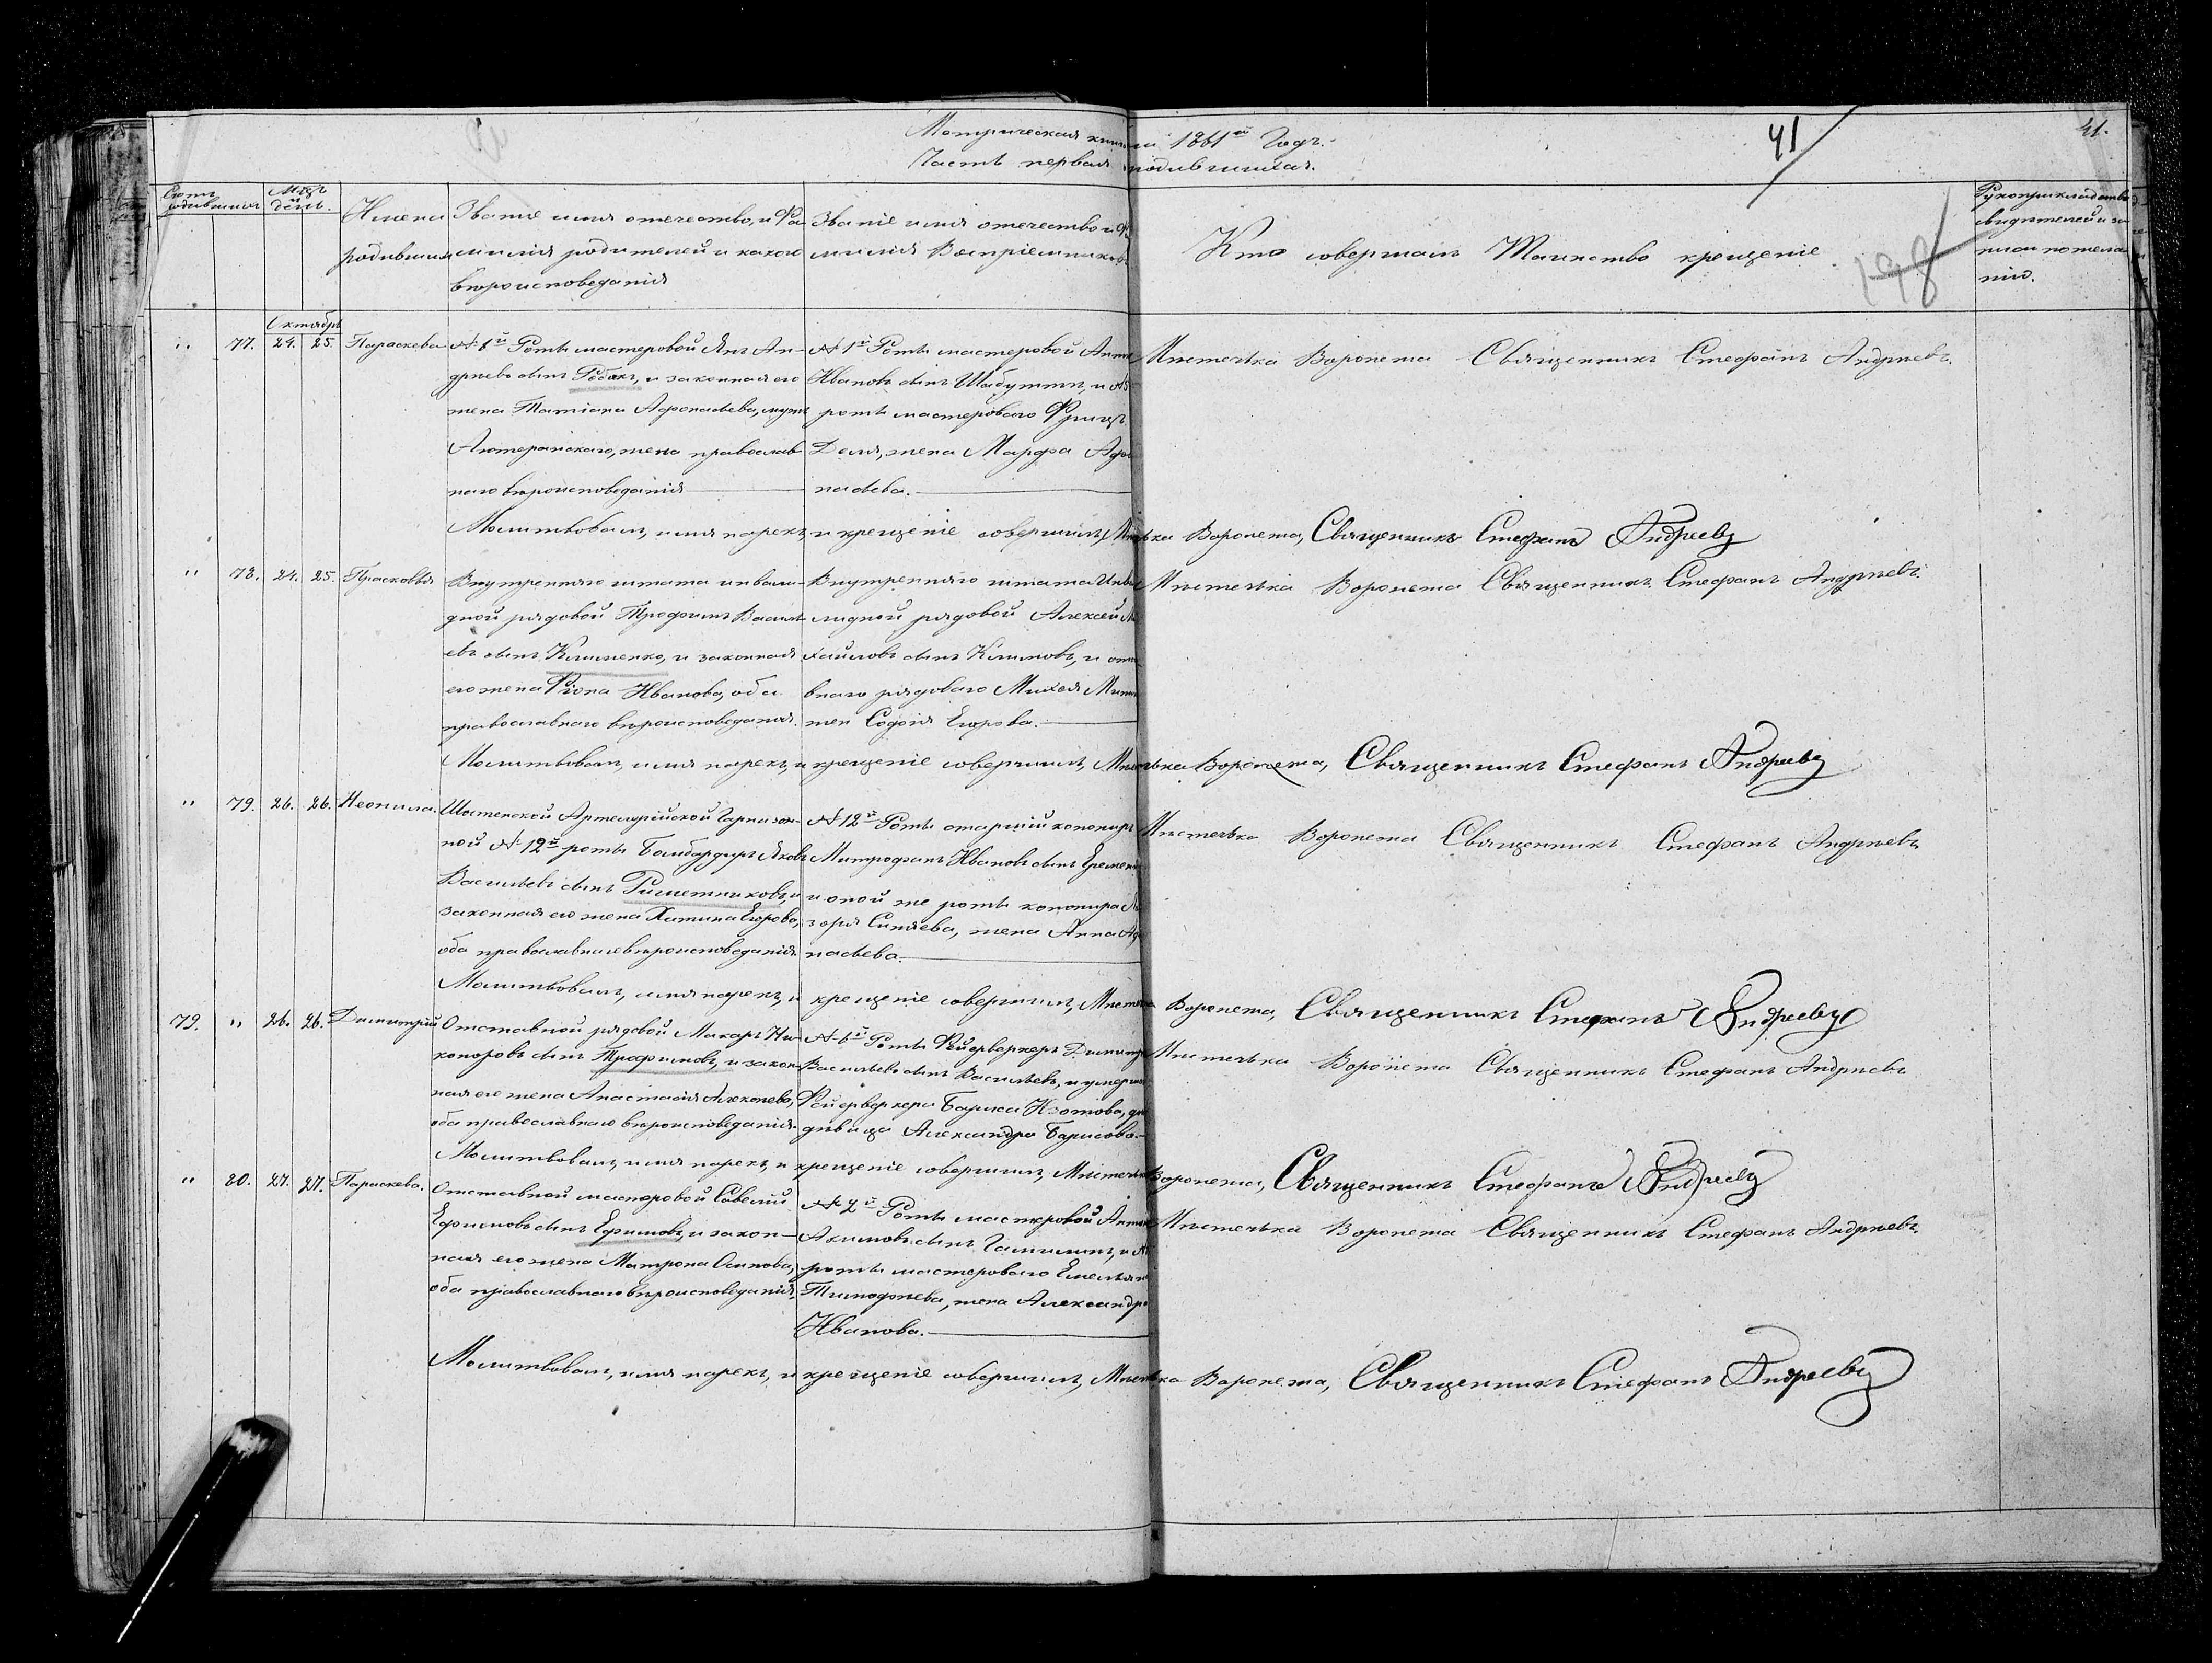 Метрическая книга 1861й Годъ.
Часть первая родившихся.
41
41.
Счетъ родившихся
Мцъ и день.
Имена родившихся
Званіе имя отечество, и Фамилія родителей и какого вѣроисповеданія
Званіе имя отечество и Фамилія Воспріемниковъ
Кто совершалъ Таинство крещеніе.
198
Рукоприкладство свидѣтелей и записи по желанію.
Октябрь
" 77. 24. 25. Параскева
№ 1й Роты мастеровой Янъ Ан-
дрѣевъ сынъ Робакъ, и законная его
жена Татіана Афонасьева, мужъ
Лютеранскаго, жена православ-
наго вѣроисповеданія
№ 1й Роты мастеровой Антонъ
Ивановъ сынъ Шабунинъ, и №
роты мастероваго Фрицъ
Деля, жена Марфа Афо-
насьева.
Мѣстечька Воронежа Священникъ Стефанъ Андрѣевъ.
Молитвовалъ, имя нарекъ, и крещеніе совершилъ, Мѣстечька Воронежа, Священникъ Стефанъ Андреевъ
" 78. 24. 25. Прасковья
Внутренняго штата инвали-
дной рядовой Трофимъ Василь-
евъ сынъ Клименко, и законная
его жена Фіона Иванова, оба
православнаго вѣроисповеданія.
Внутренняго штата Инва-
лидной рядовой Алексей Ми-
хайловъ сынъ Климовъ, и отста-
внаго рядоваго Михея
жен Софія Егорова.
Мѣстечька Воронежа Священникъ Стефанъ Андрѣевъ.
Молитвовалъ, имя нарекъ, и крещеніе совершилъ, Мѣстечька Воронежа, Священникъ Стефанъ Андреевъ
" 79. 26. 26. Неонила.
Шостенской Артелерійской Гарнизон-
ной № 12й роты Бамбардиръ Яковъ
Васильевъ сынъ Ришетниковъ, и
законная его жена Хатина Егорова,
оба православнаго вѣроисповеданія.
№ 12й Роты старшій кононеръ
Митрофанъ Ивановъ сынъ
и оной же роты кононира
Синяева, жена Анна Афо-
насьева.
Мѣстечька Воронежа Священникъ Стефанъ Андрѣевъ
Молитвовалъ, имя нарекъ, и крещеніе совершилъ, Мѣстечька Воронежа, Священникъ Стефанъ Андреевъ
79. " 26. 26. Димитрій
Отставной рядовой Макаръ Ни-
коноровъ сынъ Трофимовъ, и закон-
ная его жена Анастасія Алексѣева,
оба православнаго вѣроисповеданія.
№ 6й Роты Фейерверкеръ Димитрій
Васильевъ сынъ Васильевъ, и умершаго
Фейерверкера Бариса Изотова, дочь
дѣвица Александра Барисова
Мѣстечька Воронежа Священникъ Стефанъ Андрѣевъ
Молитвовалъ, имя нарекъ, и крещеніе совершилъ, Мѣстечька Воронежа, Священникъ Стефанъ Андреевъ
" 80. 27. 27. Параскева.
Отставной мастеровой Савелій
Ефимовъ сынъ Ефимовъ, и закон-
ная его жена Матрона Осипова,
оба православнаго вѣроисповеданія.
№ 2й Роты мастеровой Антонъ
Акимовъ сынъ и №
роты мастероваго Емельяна
Тимофѣева, жена Александра
Иванова.
Мѣстечька Воронежа Священникъ Стефанъ Андрѣевъ.
Молитвовалъ, имя нарекъ, и крещеніе совершилъ, Мѣстечька Воронежа, Священникъ Стефанъ Андреевъ